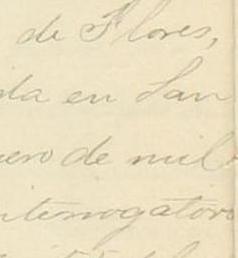 de Flores,
da en San
ero de mil
nterrogatorio